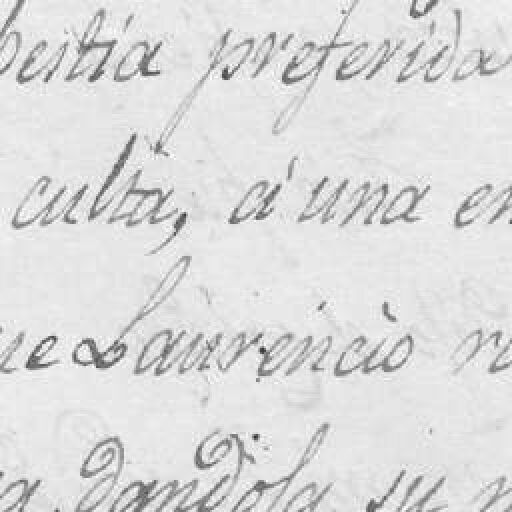 bestia preferida
culta, á una en
ue Laurencio ro
a dandola su